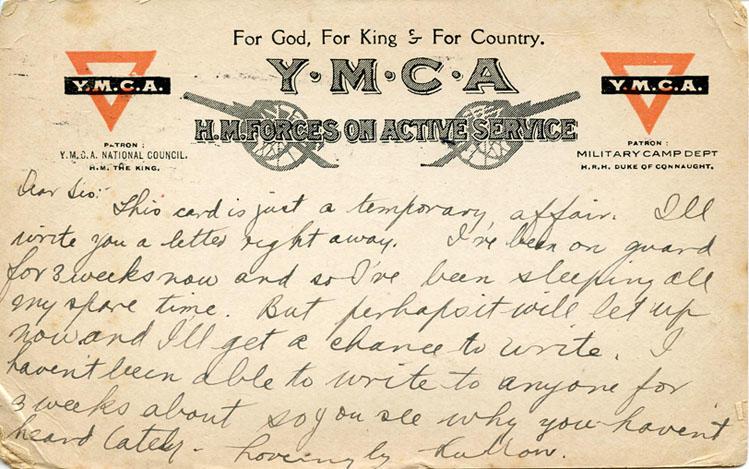 For God, For King & For Country.
Y·M·C·A
H.M. FORCES ON ACTIVE SERVICE
Y.M.C.A.
PATRON:
Y.M.C.A. NATIONAL COUNCIL.
H.M. THE KING.
Y.M.C.A.
PATRON:
MILITARY CAMP DEPT
H.R.H. DUKE OF CONNAUGHT.
Dear Sis:
This card is just a temporary affair. I'll
write you a letter right away. I've been on guard
for 3 weeks now and so I've been sleeping all
my spare time. But perhaps it will let up
now and I'll get a chance to write. I
haven't been able to write to anyone for
3 weeks about so you see why you haven't
heard lately - Lovingly